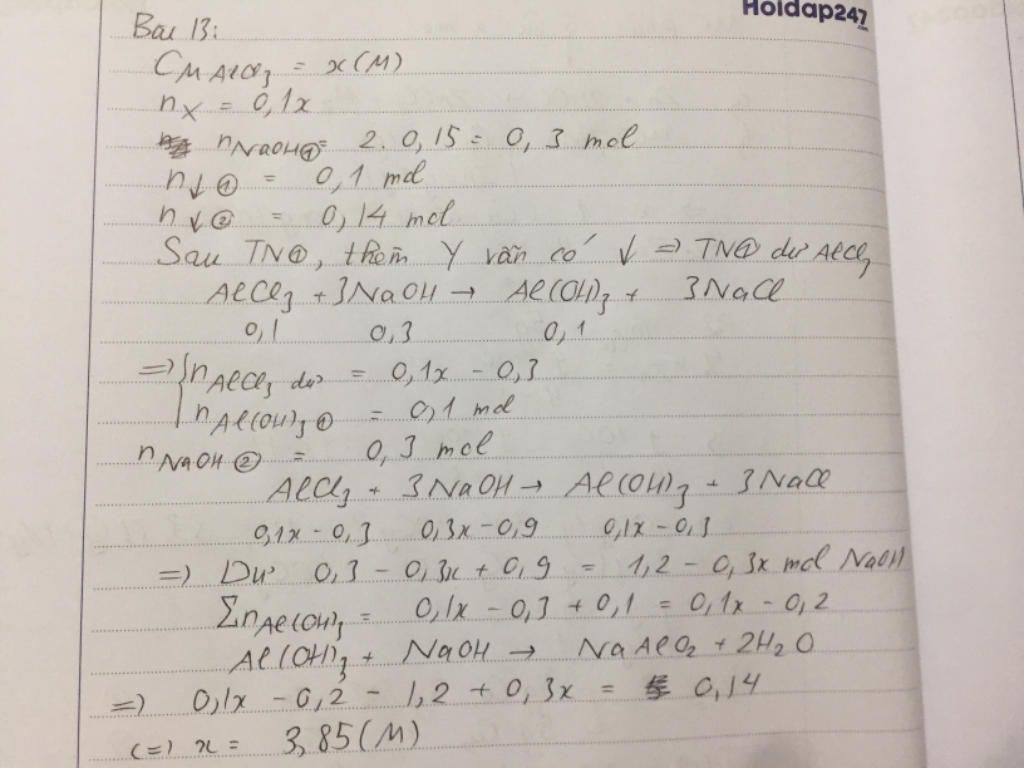 Hoidap247
Bài 13:
CM AlCl3 = x(M)
nX = 0,1x
nNaOH① = 2. 0,15 = 0,3 mol
n↓① = 0,1 mol
n↓② = 0,14 mol
Sau TN①, thêm Y vẫn có ↓ => TN① dư AlCl3
AlCl3 + 3NaOH → Al(OH)3 + 3NaCl
0,1 0,3 0,1
=> { nAlCl3 dư = 0,1x - 0,3
nAl(OH)3① = 0,1 mol
nNaOH② = 0,3 mol
AlCl3 + 3NaOH → Al(OH)3 + 3NaCl
0,1x - 0,3 0,3x - 0,9 0,1x - 0,3
=> Dư 0,3 - 0,3x + 0,9 = 1,2 - 0,3x mol NaOH
ΣnAl(OH)3 = 0,1x - 0,3 + 0,1 = 0,1x - 0,2
Al(OH)3 + NaOH → NaAlO2 + 2H2O
=> 0,1x - 0,2 - 1,2 + 0,3x = 0,14
(=) x = 3,85(M)